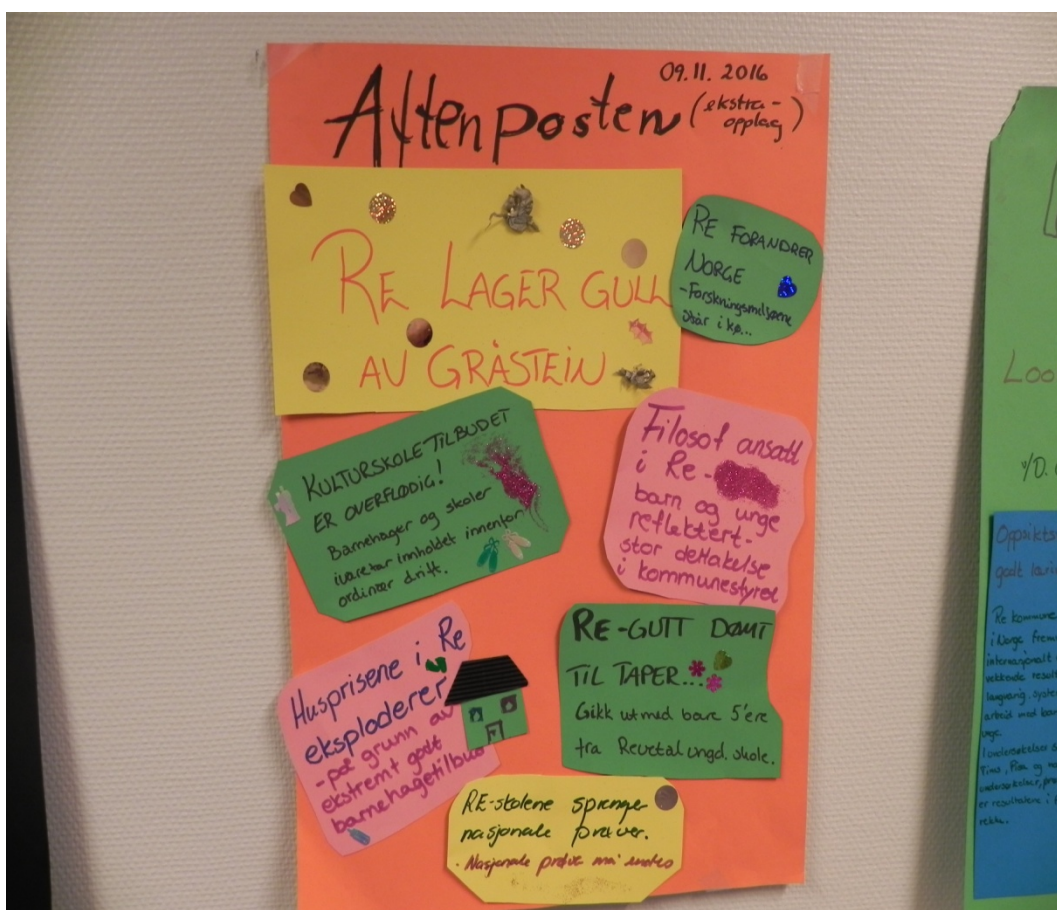 Aftenposten
09.11.2016
(ekstra-
opplag)
RE LAGER GULL
AV GRÅSTEIN
RE FORANDRER
NORGE
-Forskningsmiljøene
står i kø...
KULTURSKOLETILBUDET
ER OVERFLØDIG!
Barnehager og skoler
ivaretar innholdet innenfor
ordinær drift.
Filosof ansatt
i Re-
barn og unge
reflektert-
stor deltakelse
i kommunestyret
Husprisene i Re
eksploderer
- på grunn av
ekstremt godt
barnehagetilbud
RE-GUTT DØMT
TIL TAPER...
Gikk ut med bare 5'ere
fra Revetal ungd. skole.
RE-skolene sprenger
nasjonale prøver.
- Nasjonale prøver må endres
Loo
v/D.
Oppsikts
godt læri
Re kommune
i Norge frem
internasjonalt
vekkende resul
langvarig, syste
arbeid med bar
unge.
I undersøkelser s
Tims, Pisa og
undersøkelser, pr
er resultatene i
rekke.